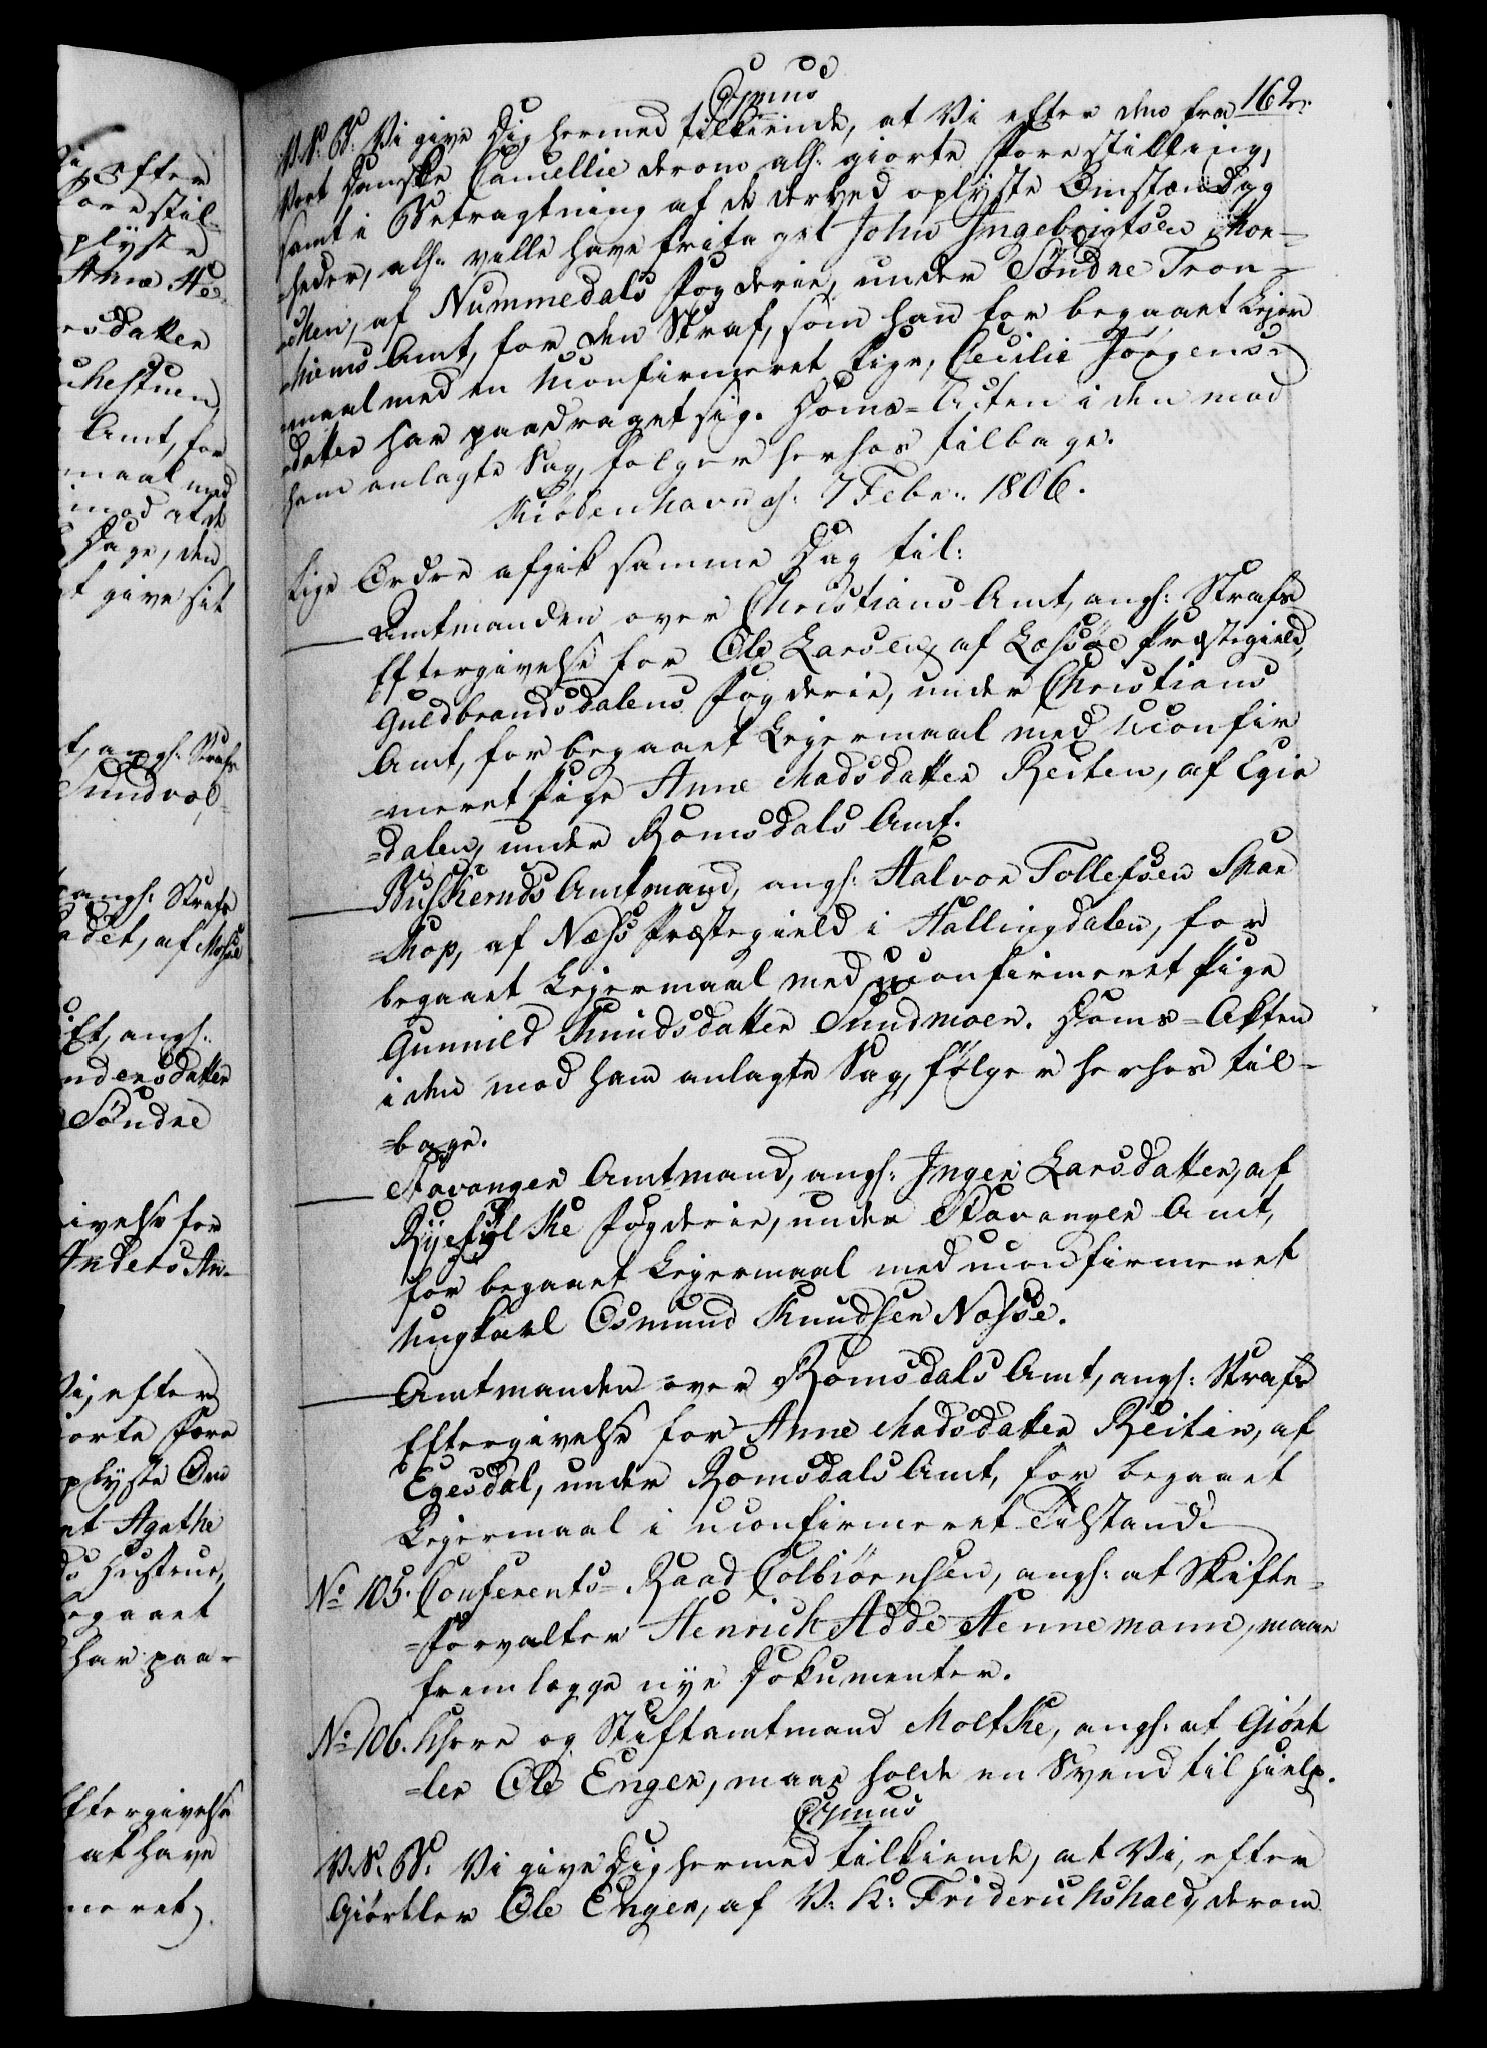 Osmus
162.
V. S. G. Vi give Dig hermed tilkiende, at Vi efter den fra
Vort Danske Cancellie derom alh: giorte Forestilling,
samt i Betragtning af de derved oplyste Omstændig
=heder, alh: ville have fritaget John Ingebrigtsen Moe-
=chen, af Nummedals Fogderie, under Søndre Tron-
=hiems Amt, for den Straf, som han for begaaet Lejer
maal med en uconfirmeret Pige, Cecilie Jørgens-
datter har paadraget sig. Doms-Acten i den mod
ham anlagte Sag, følger herhos tilbage.
Kiøbenhavn d: 7 Febr: 1806.
Lige Ordre afgik samme Dag til:
Amtmanden over Christians Amt, angh: Strafs
Eftergivelse for Ole Larsen, af Lessøe Præstegield,
Guldbrandsdalens Fogderie, under Christians
Amt, for begaaet Lejermaal med uconfir
=meret Pige Anne Madsdatter Reiten, af Egis
=dalen, under Romsdals Amt.
Buskeruds Amtmand, angh: Halvor Tollefsen Skar
=shop, af Næss Præstegield i Hallingdalen, for
begaaet Lejermaal med uconfirmeret Pige
Gunnild Knudsdatter Sundmoen. Doms-Akten
i den mod ham anlagte Sag, følger herhos til-
=bage.
Stavanger Amtmand, angh: Inger Larsdatter, af
Ryefylke Fogderie, under Stavanger Amt,
for begaaet Lejermaal med uconfirmeret
Ungkarl Osmund Knudsen Nessse.
Amtmanden over Romsdals Amt, angh: Strafs
Eftergivelse for Anne Madsdatter Reiten, af
Egesdal, under Romsdals Amt, for begaaet
Lejermaal i uconfirmeret Tilstand.
No 105. Conferents-Raad Colbiørnsen, angh: at Skifte-
=forvalter Henrich Adde Hennemann, maae
fremlægge nye Dokumenter.
No 106. Khere og Stiftamtmand Moltke, angh: at Giørt
=ler Ole Enger, maae holde en Svend til Hielp.
Osmus
V. S. G. Vi give Dig hermed tilkiende, at Vi, efter
Giørtler Ole Enger, af V: K: Friderichshald, derom